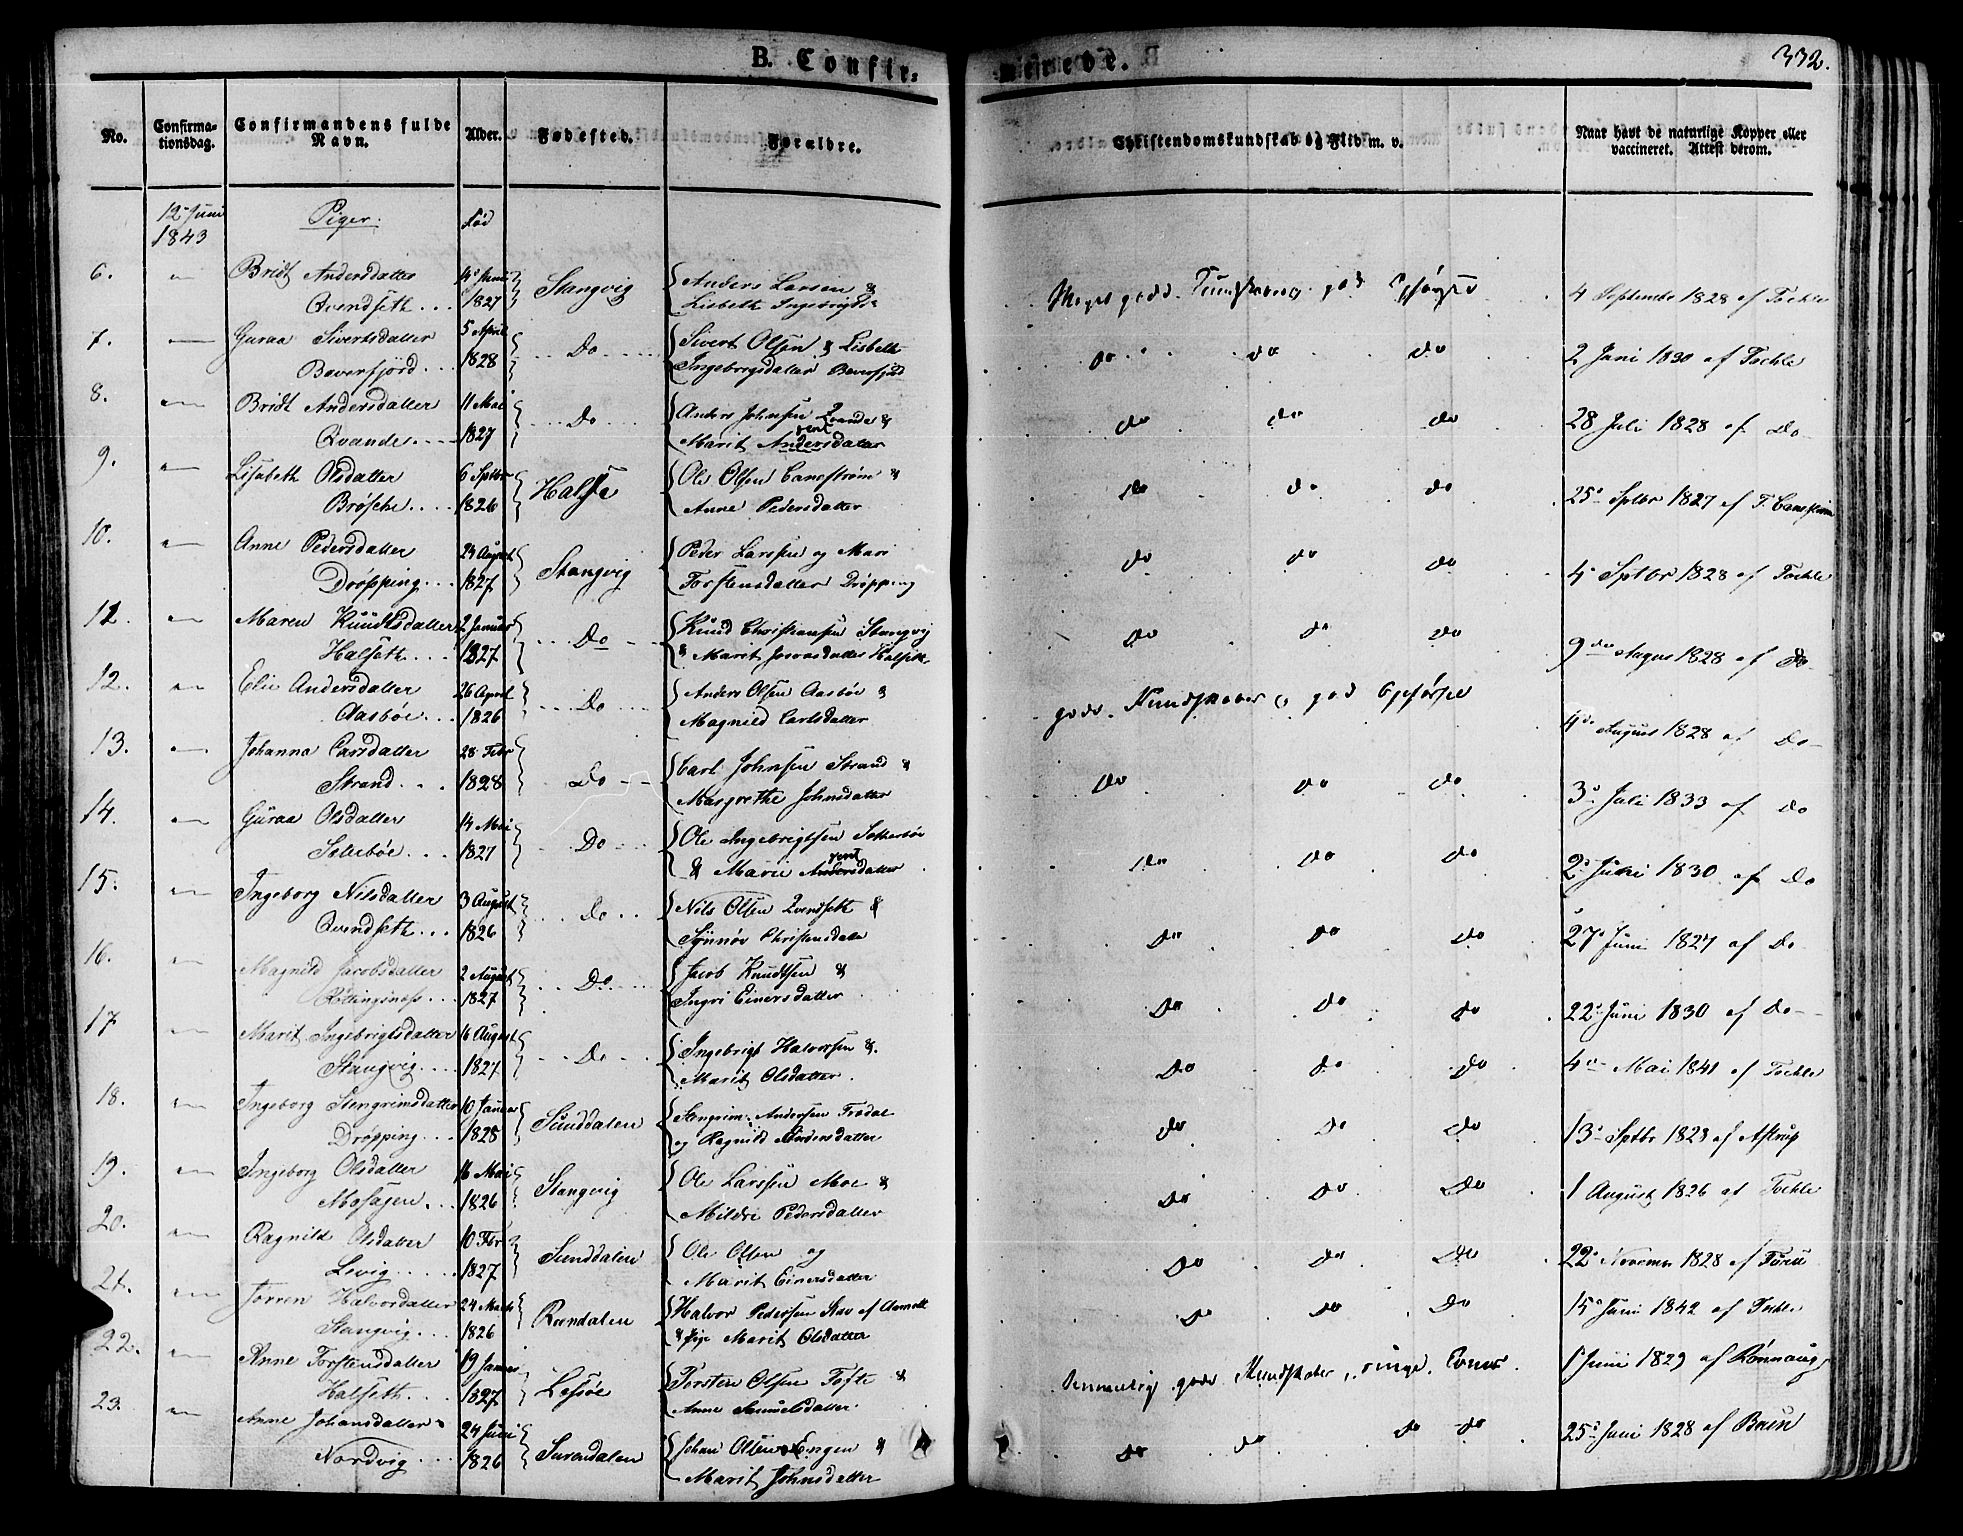 B. Confir= merede. 332.
No. Confirmationsdag. Confirmandens fulde Navn. Alder. Fødested. Forældre. Christendomskundskab og Flid m. v. Naar havt de naturlige Kopper eller vaccineret. Attest derom.
12 Juni 1843 Piger. Fød
6. Bridt Andersdatter 4 Juni Stangvig Anders Larsen & god 4 Septembr 1828 af Tochle
Qvendseth 1827 Lisbeth Ingebrigtsd
7. Guraa Sivertsdatter 5 April Do Sivert Olsen & Lisbeth do do do 2 Juni 1830 af Tochle
Bæverfjord 1828 Ingeborgsdatter Bæverfjord
8. Bridt Andersdatter 11 Mai Do Anders Johnsen Qvande & do do do 28 Juli 1828 af Do
Qvande 1827 Marit Andersdatter
9. Lisabeth Olsdatter 6 Sptbr Halse Ole Olsen & do do do 25 Sptbr 1827 af
Brøske 1826 Anne Pedersdatter
10. Anne Pedersdatter Stangvig Peder Larssen og Mari do do do 4 Sptbr 1828 af Tochle
Drøpping 1827 Torstensdatter Drøpping
11. Maren Knudtsdatter 2 Januar Do Knud Christiansen Stangvig do do do 9de August 1828 af Do
Halseth 1827 & Marit Halseth
12. Elie Andersdatter 26 April Do Anders Olsen Aasbøe & gode Kundskaber og god Opførsel 4de August 1828 af Do
Aasbøe 1826 Magnild Carlsdatter
13. Johanna Carlsdatter 28 Febr Do Carl Johnsen Strand & Do do do 3 Juli 1833 af Do
Strand 1828 Margrethe Johnsdatter
14. Guraa Olsdatter 14 Mai Do Ole Ingebrigtsen do do do 2 Juni 1830 af Do
1827 & Marie Andersdatter
15. Ingeborg Nilsdatter 3 August Do Nils Olsen Qvendseth & do do do 27 Juni 1827 af Do
Qvendseth 1826 Synnøv Christensdatter
16. Magnild Jacobsdatter 2 August Do Jacob Knudtsen & do do do 22 Juni 1830 af Do
1827 Ingri Einersdatter
17 Marit Ingebrigtsdatter 16 August Do Ingebrigt Halvorsen & do do do 4 Mai 1841 af Tochle
Stangvig 1827 Marit Olsdatter
18. Ingeborg Stengrimsdatter 10 Januar Sunddalen Stengrim Andersen do do do 13 Sptbr 1828 af Astrup
Drøpping 1828 og Ragnild Andersdatter
19. Ingeborg Olsdatter 16 Mai Stangvig Ole Larssen Moe & do do do 1 August 1826 af Tochle
1826 Mildri Pedersdatter
20. Ragnild Olsdatter 10 Febr Sunddalen Ole Olsen og do do do 22 November 1828 af
Levig 1827 Marit Einersdatter
21. Halvorsdatter 24 Marts Halvor Pedersen do do do 15 Juni 1842 af Tochle
Stangvig 1826 & Pige Marit Olsdatter
22. Anne Torstensdatter 19 Januar Lesøe Torsten Olsen Tofte & gode Kundskaber 1 Juni 1829 af
Halseth 1827 Anne Samuelsdatter
23. Anne Johansdatter 24 Juni Surendalen Johan Olsen Engen & do do do do 25 Juni 1828 af
Nordvig 1826 Marit Johnsdatter